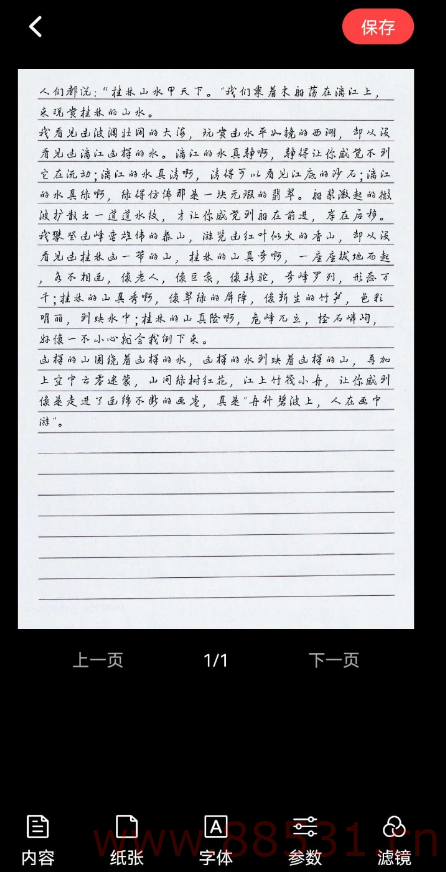 保存
人们都说："桂林山水甲天下。"我们乘着木船荡在漓江上，
来观赏桂林的山水。
我看见过波澜壮阔的大海，玩赏过水平如镜的西湖，却从没
看见过漓江这样的水。漓江的水真静啊，静得让你感觉不到
它在流动；漓江的水真清啊，清得可以看见江底的沙石；漓江
的水真绿啊，绿得仿佛那是一块无瑕的翡翠。船桨激起的微
波扩散出一道道水纹，才让你感觉到船在前进，岸在后移。
我攀登过峰峦雄伟的泰山，游览过红叶似火的香山，却从没
看见过桂林这一带的山，桂林的山真奇啊，一座座拔地而起
，各不相连，像老人，像巨象，像骆驼，奇峰罗列，形态万
千；桂林的山真秀啊，像翠绿的屏障，像新生的竹笋，色彩
明丽，倒映水中；桂林的山真险啊，危峰兀立，怪石嶙峋，
好像一不小心就会栽倒下来。
这样的山围绕着这样的水，这样的水倒映着这样的山，再加
上空中云雾迷蒙，山间绿树红花，江上竹筏小舟，让你感到
像是走进了连绵不断的画卷，真是"舟行碧波上，人在画中
游"。
上一页 1/1 下一页
www.88531.cn
内容 纸张 字体 参数 滤镜